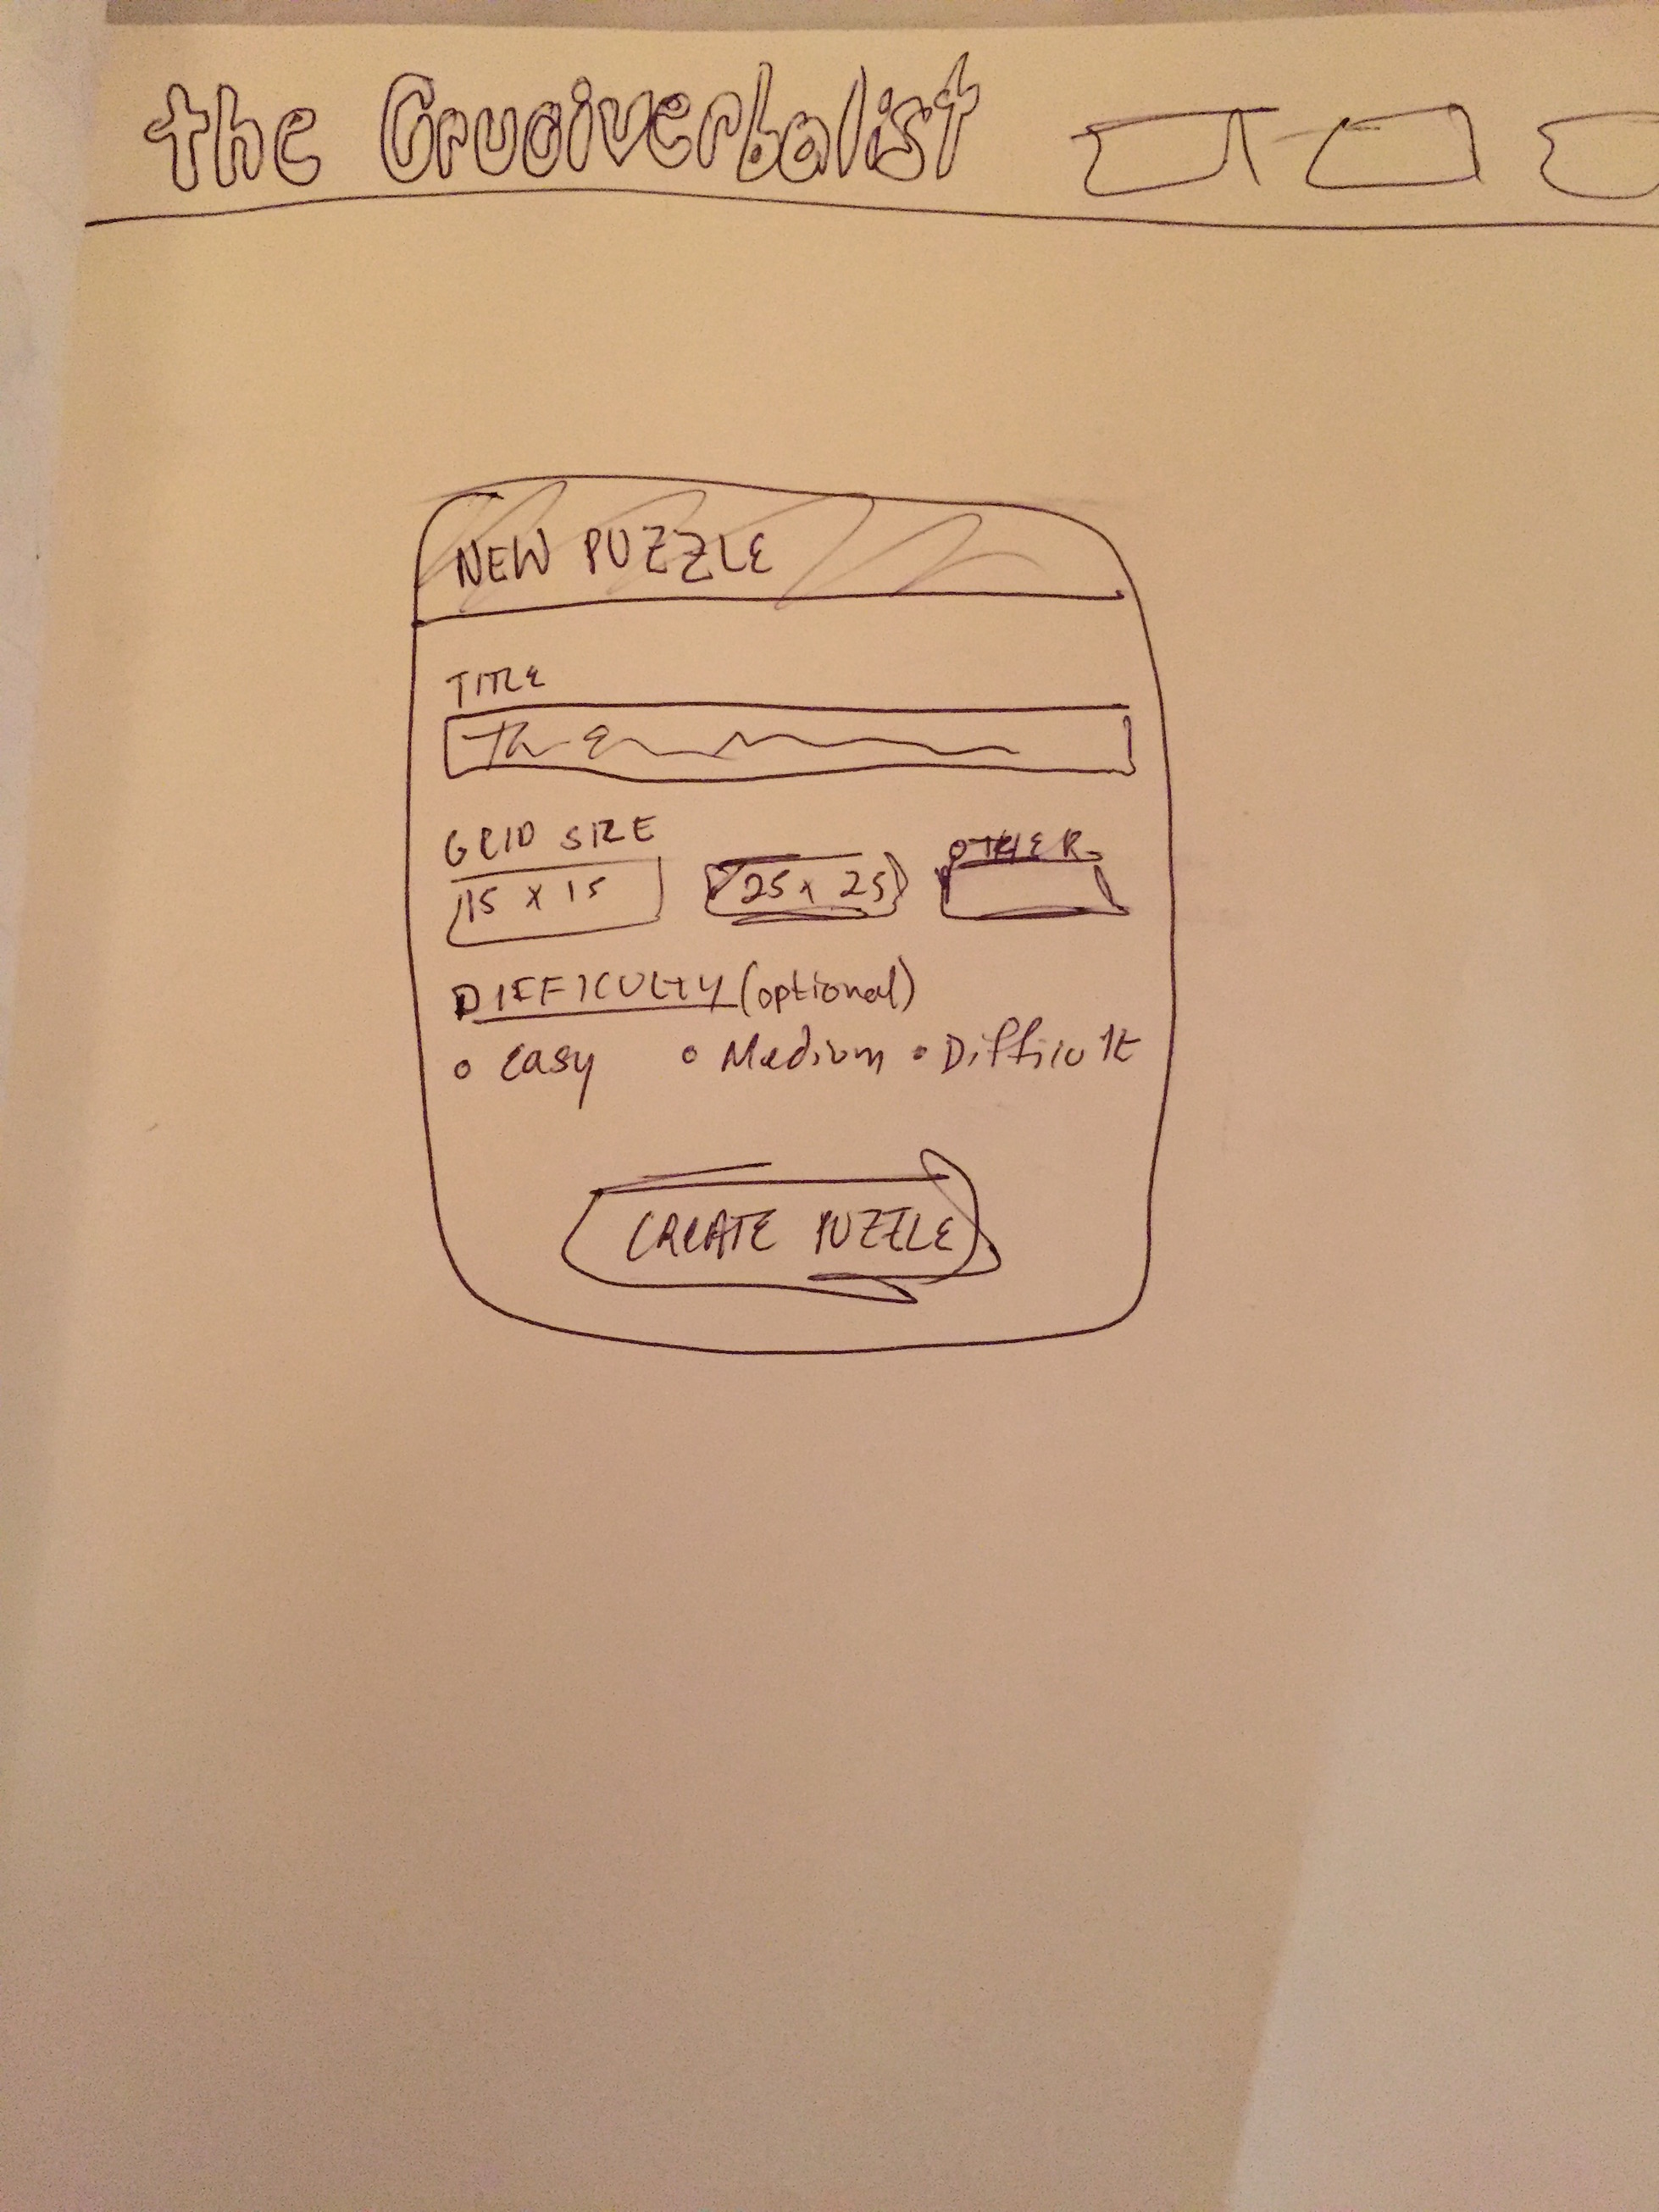 the Cruciverbalist
NEW PUZZLE
TITLE
GRID SIZE
OTHER
15 x 15
25 x 25
DIFFICULTY (optional)
easy
Medium
Difficult
CREATE PUZZLE